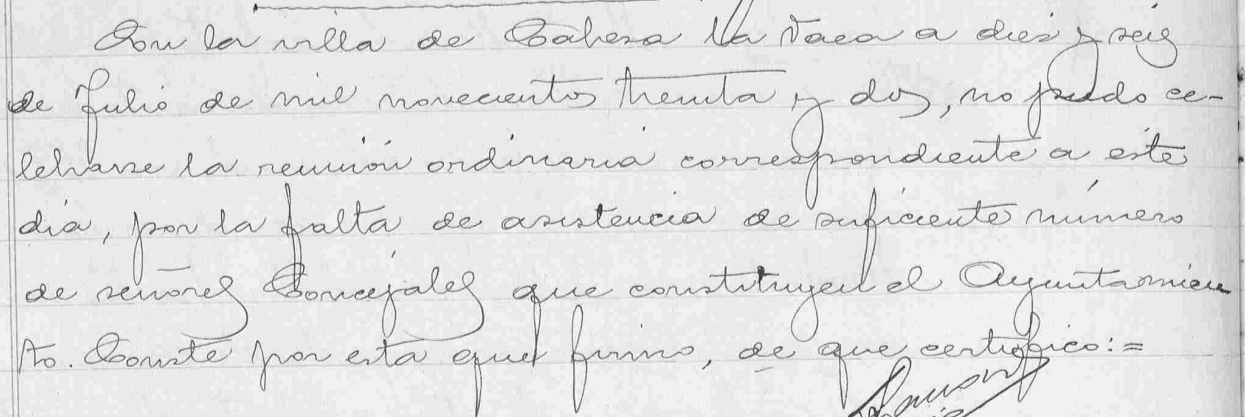 En la villa de Cabeza la Vaca a diez y seis
de Julio de mil novecientos treinta y dos, no pudo ce-
lebrarse la reunión ordinaria correspondiente a este
día, por la falta de asistencia de suficiente número
de señores Concejales que constituyen el Ayuntamien
to. Conste por esta que firmo, de que certifico:=
Ramon